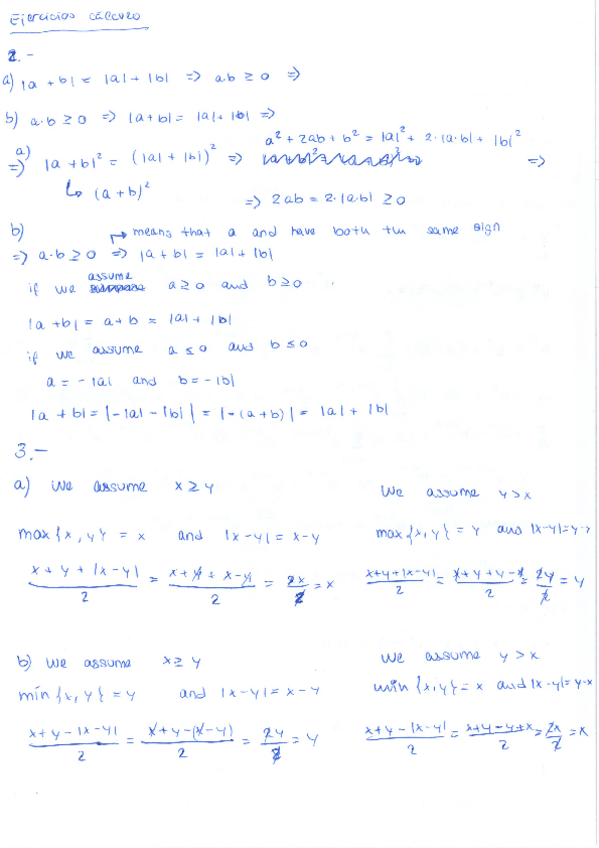 Ejercicios cálculo
2.-
a) |a + b| = |a| + |b| => ab ≥ 0 =>
b) a·b ≥ 0 => |a+b| = |a| + |b| =>
a) => |a + b|² = (|a| + |b|)² => a² + 2ab + b² = |a|² + 2·|a·b| + |b|² =>
↳ (a + b)²
=> 2ab = 2·|a·b| ≥ 0
b) means that a and have both the same sign
=> a·b ≥ 0 => |a + b| = |a| + |b|
if we assume a ≥ 0 and b ≥ 0
|a + b| = a + b = |a| + |b|
if we assume a ≤ 0 and b ≤ 0
a = -|a| and b = -|b|
|a + b| = |-|a| - |b|| = |-(a + b)| = |a| + |b|
3.-
a) We assume x ≥ y
max{x, y} = x and |x-y| = x-y
x + y + |x-y| / 2 = x + y + x - y / 2 = 2x / 2 = x
We assume y > x
max{x, y} = y and |x-y| = y-x
x+y+|x-y| / 2 = x+y+y-x / 2 = 2y / 2 = y
b) We assume x ≥ y
min{x, y} = y and |x-y| = x-y
x + y - |x-y| / 2 = x + y - (x-y) / 2 = 2y / 2 = y
We assume y > x
min{x, y} = x and |x-y| = y-x
x+y-|x-y| / 2 = x+y-y+x / 2 = 2x / 2 = x